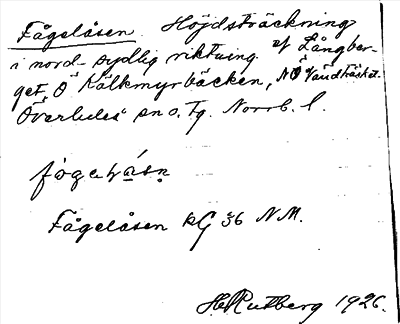 Fågelåsen. Höjdsträckning
i nord-sydlig riktning af Långber-
get, Ö Kälkmyrbäcken, NÖ Vändträsket.
Överluleå sn o. Tg. Norrb. l.
Fågelåsen kG 36 NM.
H. Rutberg 1926.